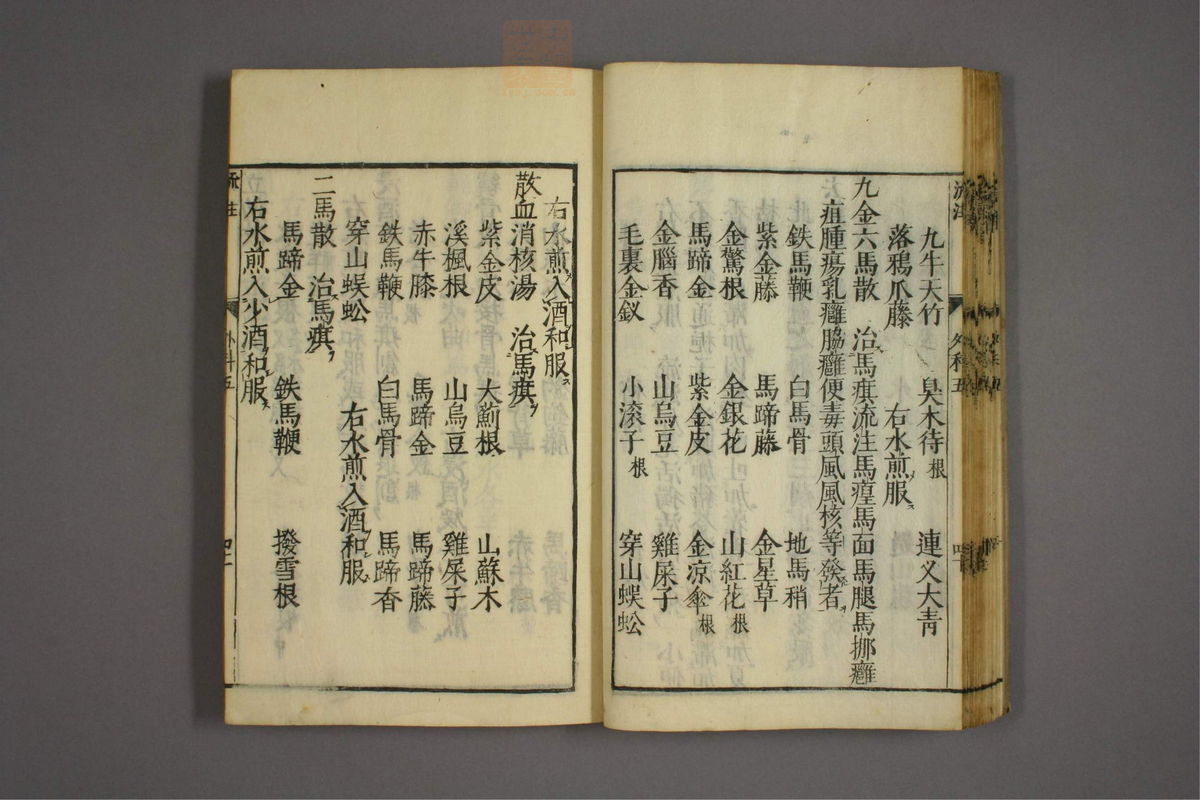 九牛天竹 臭木待根 連乂大青
落鴉爪藤 右水煎服
九金六馬散 治馬㾿流注馬㾮馬面馬腿馬挪癰
疽腫瘍乳癰脇癰便毒頭風風核等發者
鉄馬鞭 白馬骨 地馬稍
紫金藤 馬蹄藤 金星草
金驚根 金銀花 山紅花根
馬蹄金 紫金皮 金凉傘根
金腦香 山烏豆 雞屎子
毛裏金釵 小滚子根 穿山蜈蚣
右水煎入酒和服
散血消核湯 治馬㾿
紫金皮 大薊根 山蘇木
溪楓根 山烏豆 雞屎子
赤牛膝 馬蹄金 馬蹄藤
鉄馬鞭 白馬骨 馬蹄香
穿山蜈蚣 右水煎入酒和服
二馬散 治馬㾿
馬蹄金 鉄馬鞭 撥雪根
右水煎入少酒和服
流注 外科五